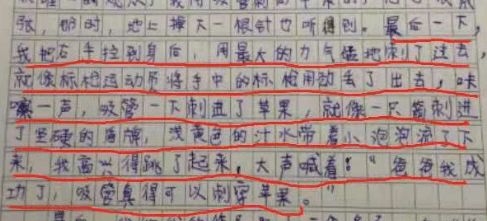 张，那时，地上掉下一根针也听得到。最后一下，
我把右手拉到身后，用最大的力气猛地刺了过去，
就像标枪运动员将手中的标枪用劲丢了出去，咔
嚓一声，吸管一下刺进了苹果，就像一只箭刺进
了坚硬的盾牌，浅黄色的汁水带着小泡泡流了下
来，我高兴得跳了起来，大声喊着："爸爸我成
功了，吸管真得可以刺穿苹果。"